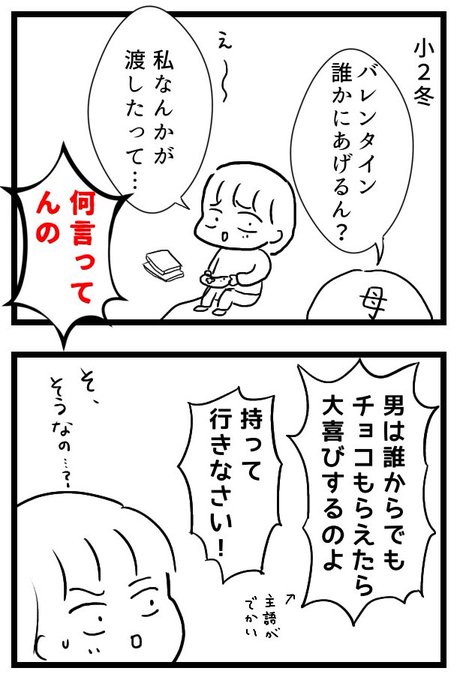 小２冬
バレンタイン
誰かにあげるん？
母
え〜
私なんかが
渡したって…
何言って
んの
男は誰からでも
チョコもらえたら
大喜びするのよ
↑主語が
でかい
持って
行きなさい！
そ、
そうなの…？